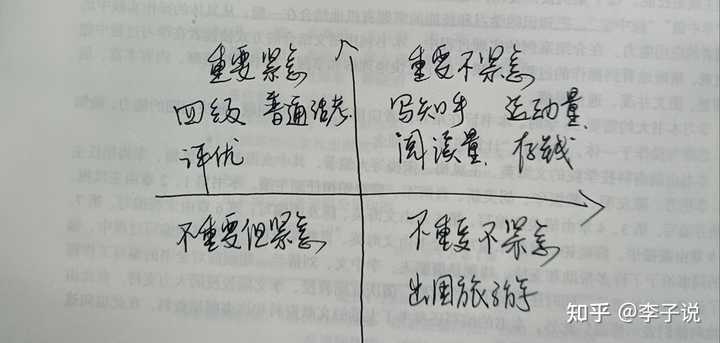 重要紧急
四级 普通话考
评优
重要不紧急
写知乎 运动量
阅读量 存钱
不重要但紧急
不重要不紧急
出国旅游
知乎 @李子说